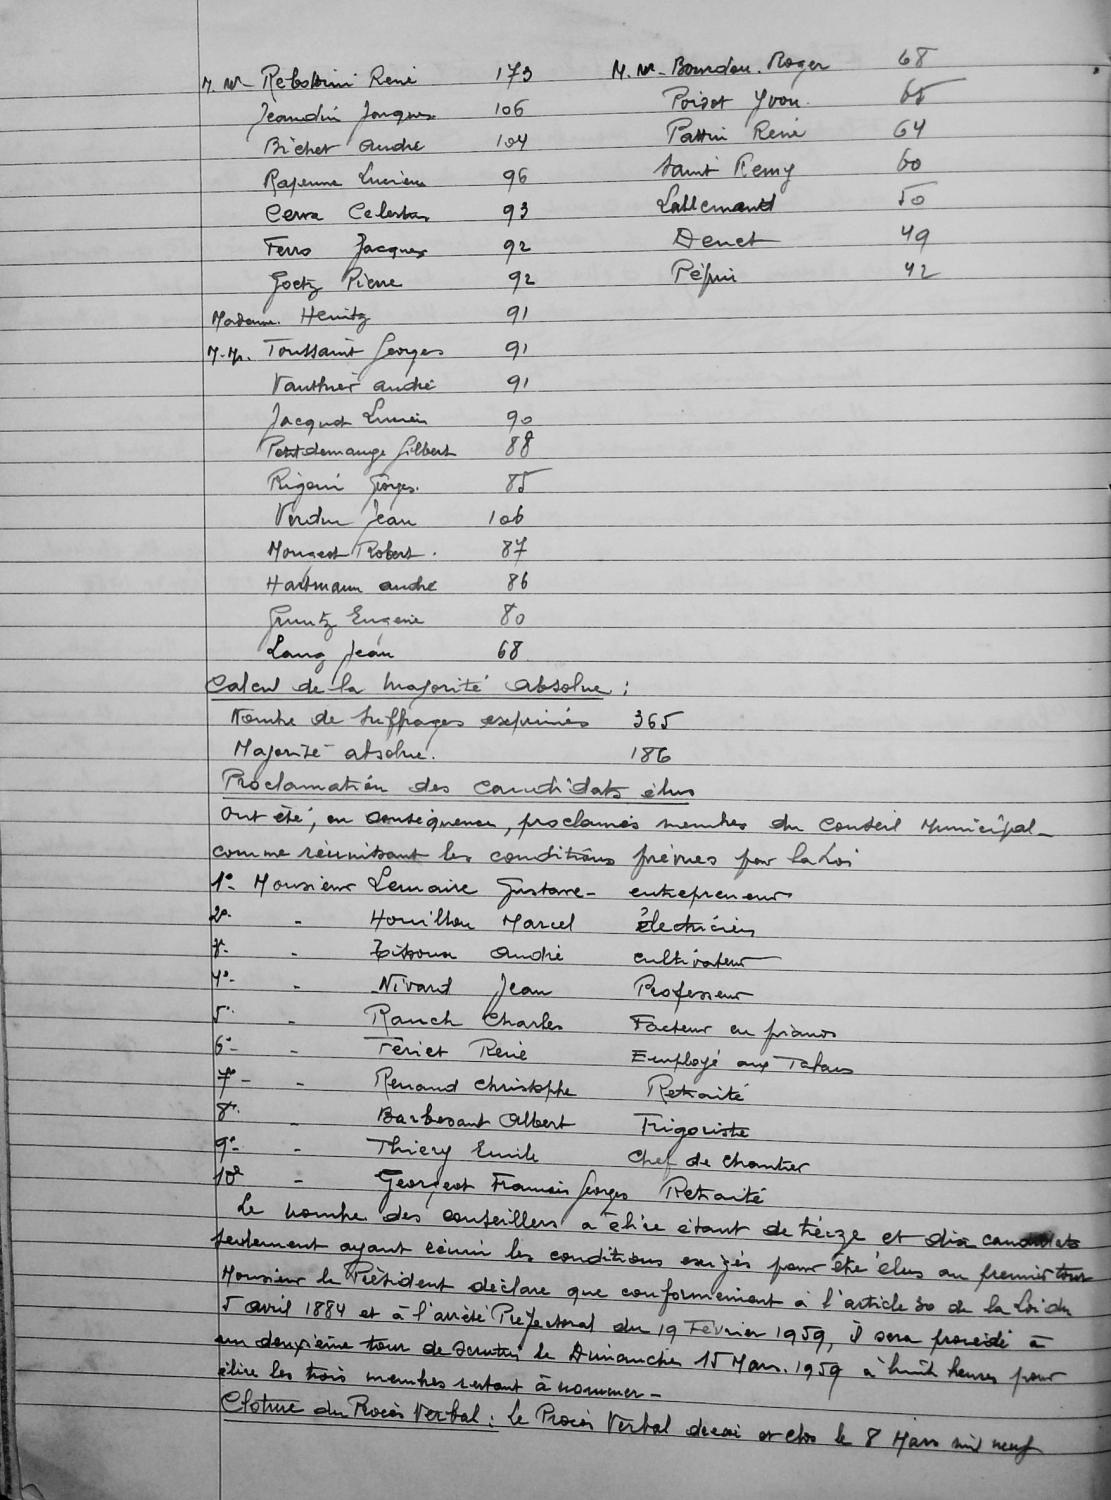 M. M. Rebstini René 173 M. M. Bourdon Roger 68
Jeandin Jacques 106 Poirot Yvon 65
Bichet André 104 Pattin René 64
Lucien 96 Saint Remy 60
Cerra Celestin 93 Lallemand 50
Ferro Jacques 92 Denet 49
Goetz Pierre 92 Pépin 42
Madame Heintz 91
M. M. Toussaint Georges 91
Vauthier André 91
Jacquot Lucien 90
Petitdemange Gilbert 88
Rigoni Georges 85
Verdun Jean 106
Mougeot Robert 87
Hartmann André 86
Gruntz Eugène 80
Lang Jean 68
Calcul de la majorité absolue :
Nombre de suffrages exprimés 365
Majorité absolue. 186
Proclamation des candidats élus
Ont été, en conséquence, proclamés membres du Conseil Municipal
comme réunissant les conditions prévues par la Loi
1°- Monsieur Lemaire Gustave - entrepreneur
2°- - Houillon Marcel électricien
3°- - André cultivateur
4°- - Nivard Jean Professeur
5°- - Rauch Charles Facteur en pianos
6°- - Fériet René Employé aux Tabacs
7°- - Renaud Christophe Retraité
8°- - Barbesant Albert Frigoriste
9°- - Thiéry Emile Chef de chantier
10° - Georgeot Francois Georges Retraité
Le nombre des conseillers à élire étant de treize et dix candidats
seulement ayant réuni les conditions exigés pour être élus au premier tour
Monsieur le Président déclare que conformément à l'article 30 de la Loi du
5 avril 1884 et à l'arrêté Préfectoral du 19 Février 1959, il sera procédé à
un deuxième tour de scrutin le Dimanche 15 Mars. 1959 à huit heures pour
élire les trois membres restant à nommer -
Cloture du Procès Verbal : Le Procès Verbal dressé et clos le 8 Mars mil neuf